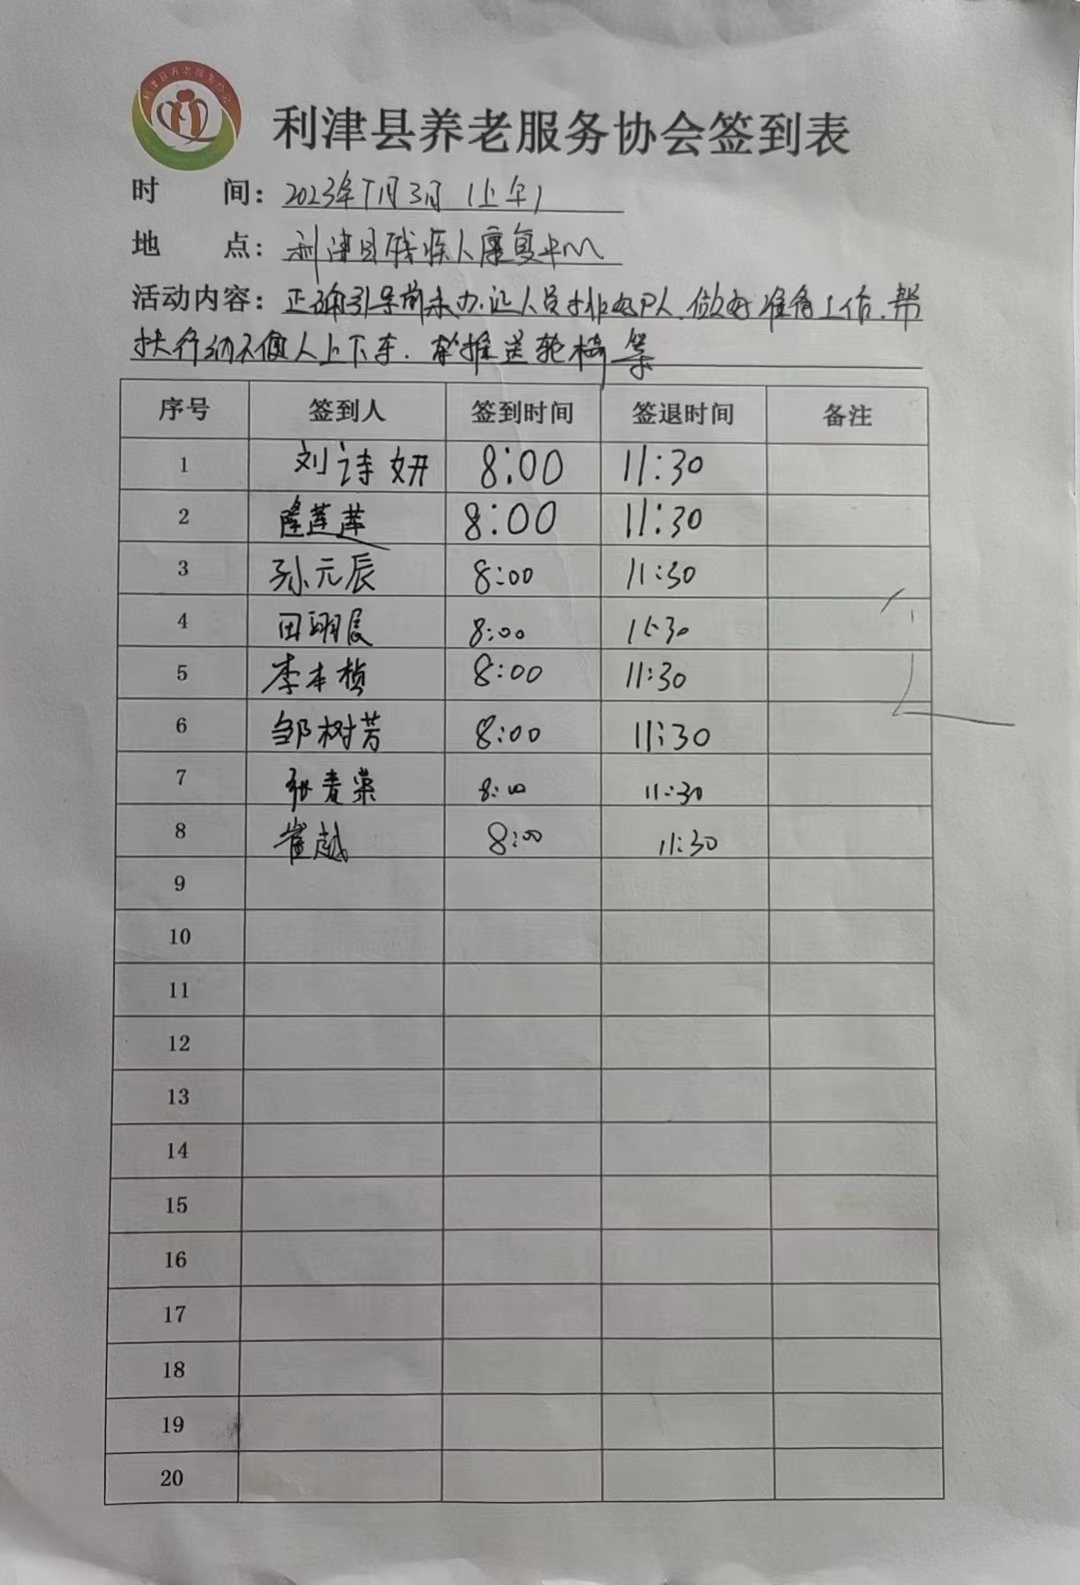 利津县养老服务协会
利津县养老服务协会签到表
时 间：2023年11月3日（上午）
地 点：利津县残疾人康复中心
活动内容：正确引导前来办证人员排好队，做好准备工作，帮
扶行动不便人上下车，帮推送轮椅等
序号 签到人 签到时间 签退时间 备注
1 刘诗妍 8:00 11:30
2 隆莲莲 8:00 11:30
3 孙元辰 8:00 11:30
4 田翊辰 8:00 11:30
5 李本桢 8:00 11:30
6 邹树芳 8:00 11:30
7 张春荣 8:00 11:30
8 崔越 8:00 11:30
9
10
11
12
13
14
15
16
17
18
19
20